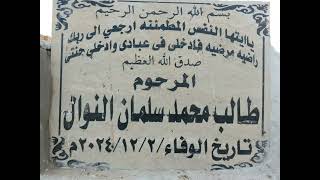 بسم الله الرحمن الرحيم
ياايتها النفس المطمئنه ارجعي الى ربك
راضيه مرضيه فادخلى فى عبادى وادخلي جنتى
صدق الله العظيم
المرحوم
طالب محمد سلمان النوال
تاريخ الوفاء/٢٠٢٤/١٢/٢م